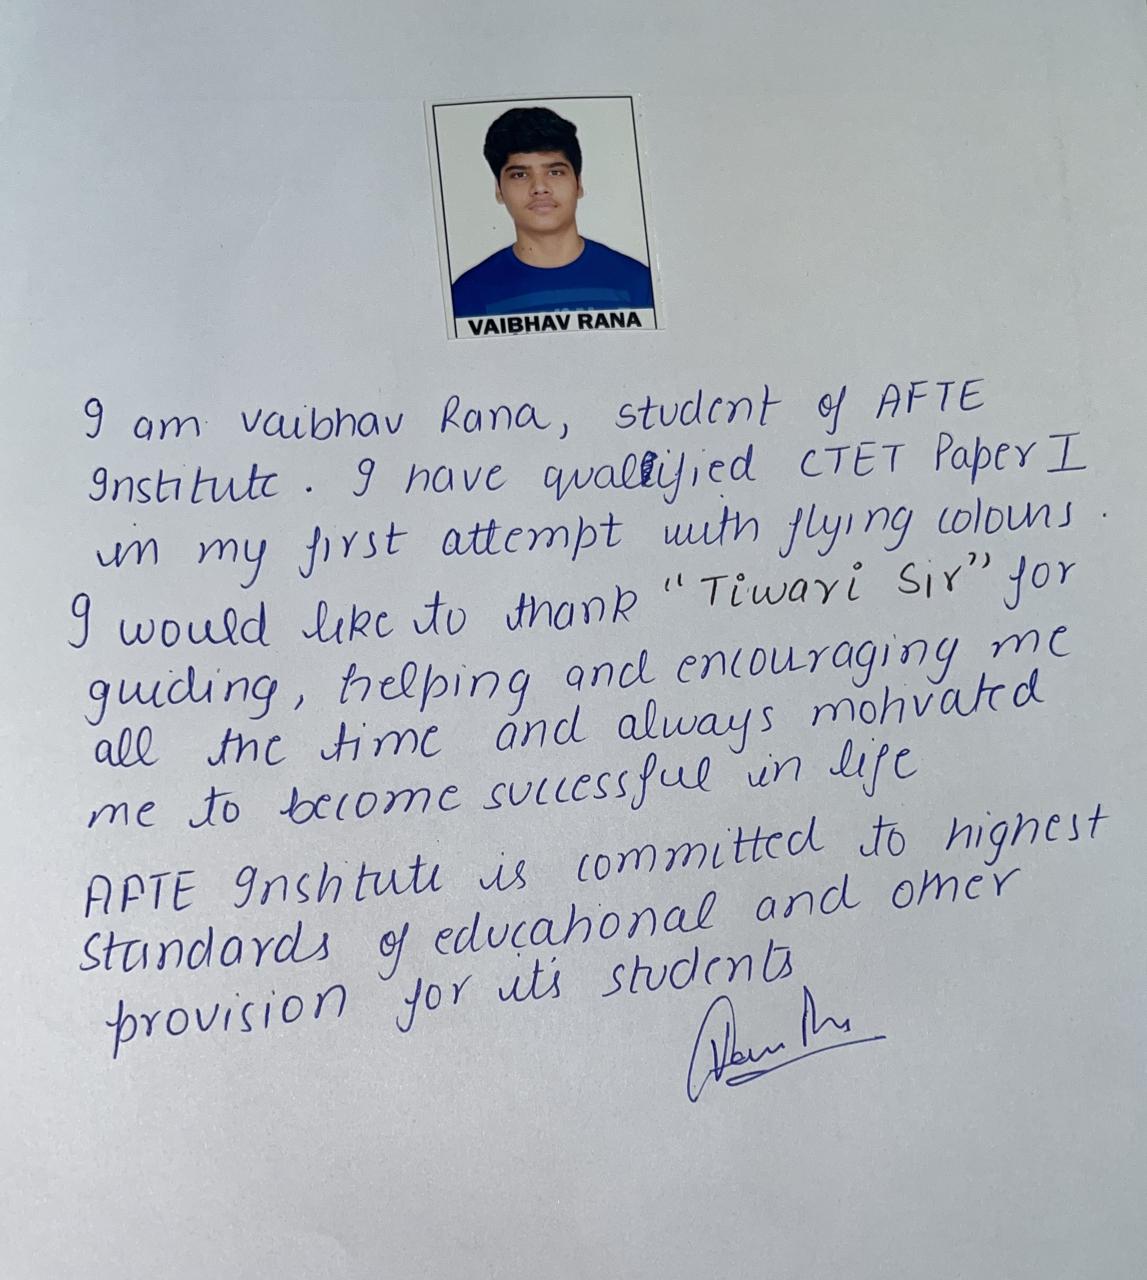 VAIBHAV RANA
I am Vaibhav Rana, student of AFTE
Institute. I have qualified CTET Paper I
in my first attempt with flying colours.
I would like to thank "Tiwari Sir" for
guiding, helping and encouraging me
all the time and always motivated
me to become successful in life
AFTE Institute is committed to highest
standards of educational and other
provision for it's students